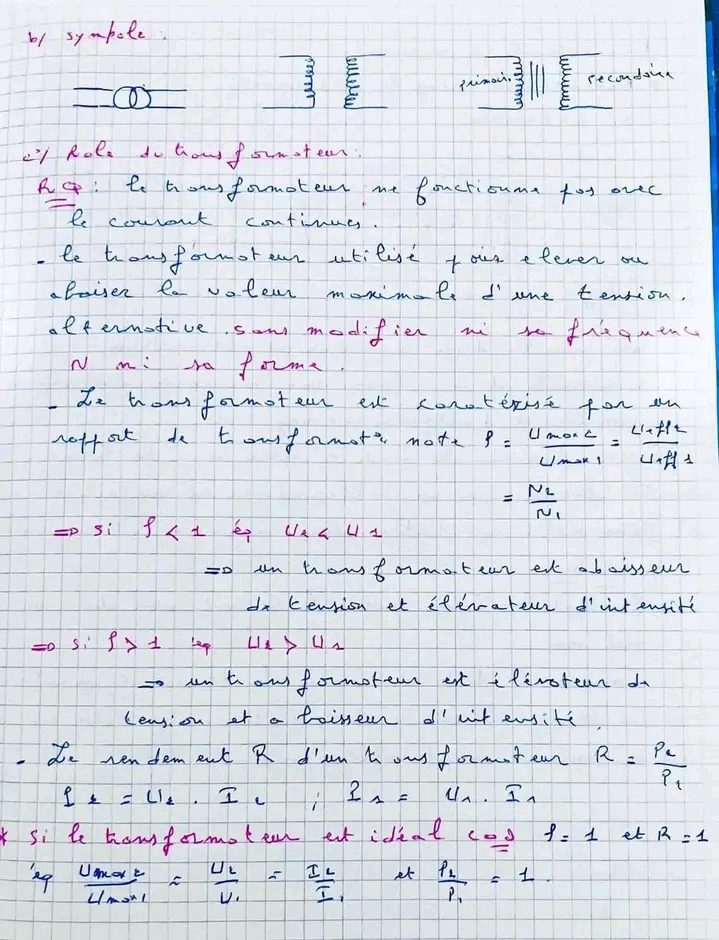 b/ sympole.
primair. secondaire
c°/ Role du transformateur:
RQ: le transformateur ne fonctionne pas avec
le courant continues.
- le transformateur utilisé pour elever ou
abaiser la valeur maximale d'une tension.
alternative sans modifier ni sa fréquence
N ni sa forme.
- Le transformateur est caratérisé par un
rapport de transformatº note ρ = Umax2/Umax1 = Ueff2/Ueff1
= N2/N1
=> si ρ < 1 éq U2 < U1
=> un transformateur est abaisseur
de tension et élévateur d'intensité
=> si ρ > 1 éq U2 > U1
=> un transformateur est élévateur de
tension et abaisseur d'intensité.
- Le rendement R d'un transformateur R = P2/P1
P2 = U2 . I2 ; P1 = U1 . I1
* si le transformateur est idéal cas ρ = 1 et R = 1
éq Umax2/Umax1 = U2/U1 = I2/I1 et P2/P1 = 1.